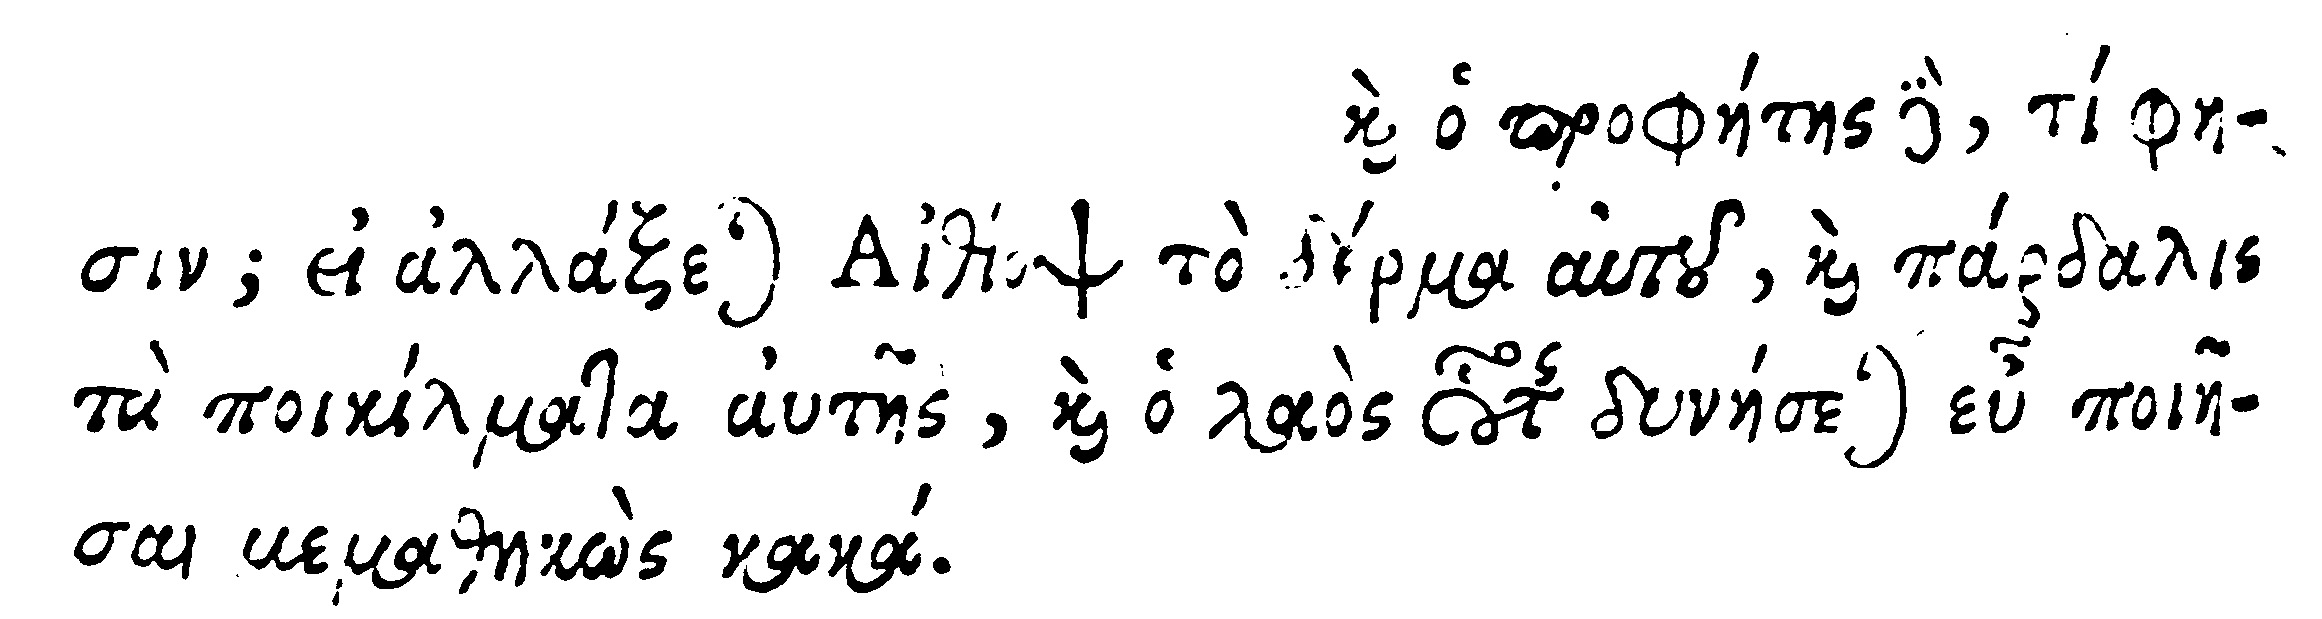 καὶ ὁ προφήτης δὲ, τί φη-
σιν; εἰ ἀλλάξεται Αἰθίοψ τὸ δέρμα αὐτοῦ, καὶ πάρδαλις
τὰ ποικίλματα αὐτῆς, καὶ ὁ λαὸς οὗτος δυνήσεται εὖ ποιῆ-
σαι μεμαθηκὼς κακά.